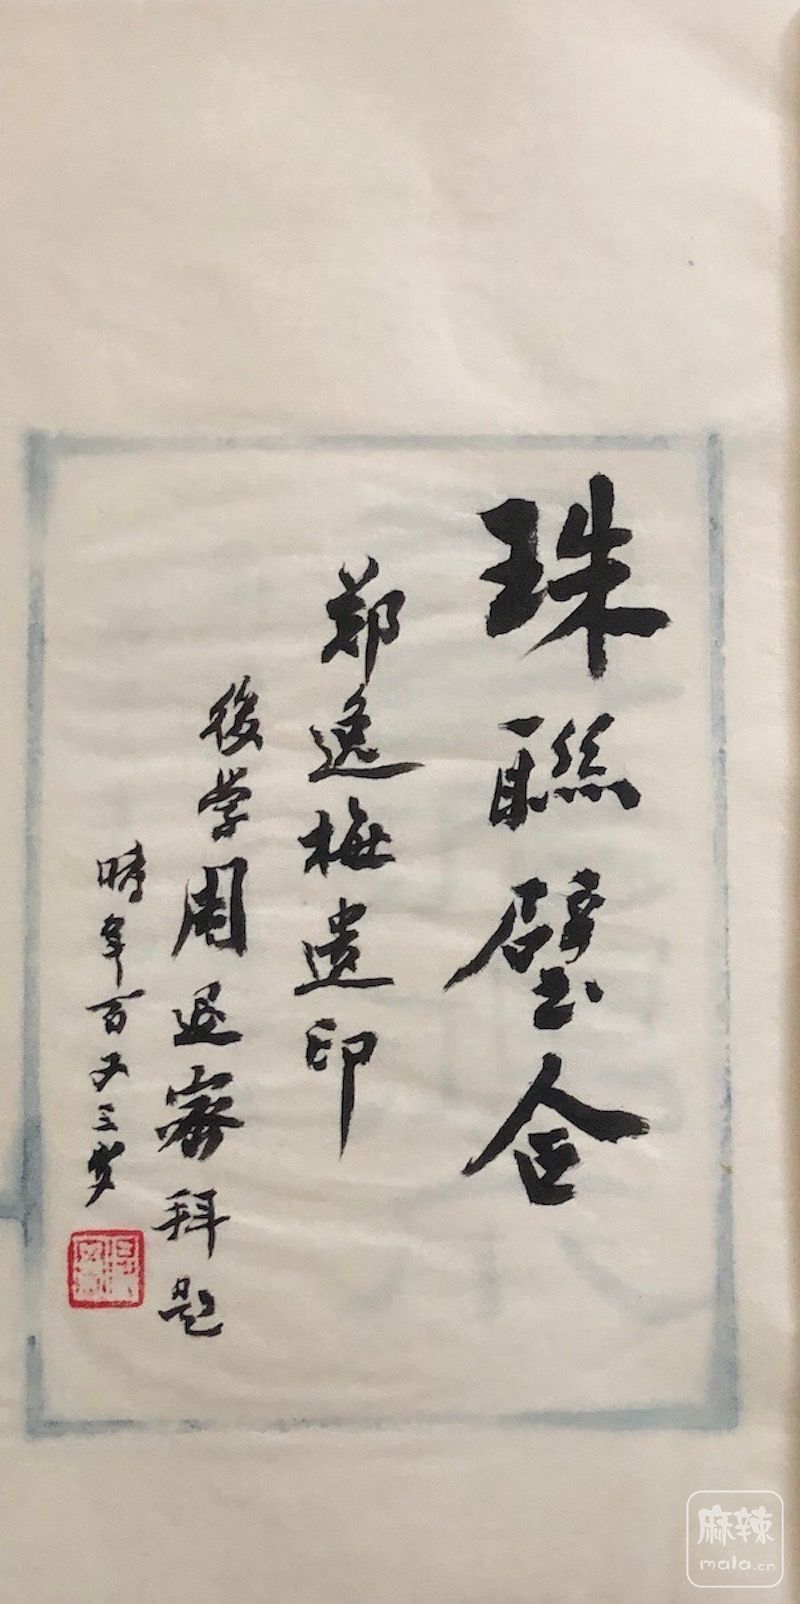 珠聯璧合
鄭逸梅遗印
後学周退密拜題
時年百又三岁
麻辣
mala.cn